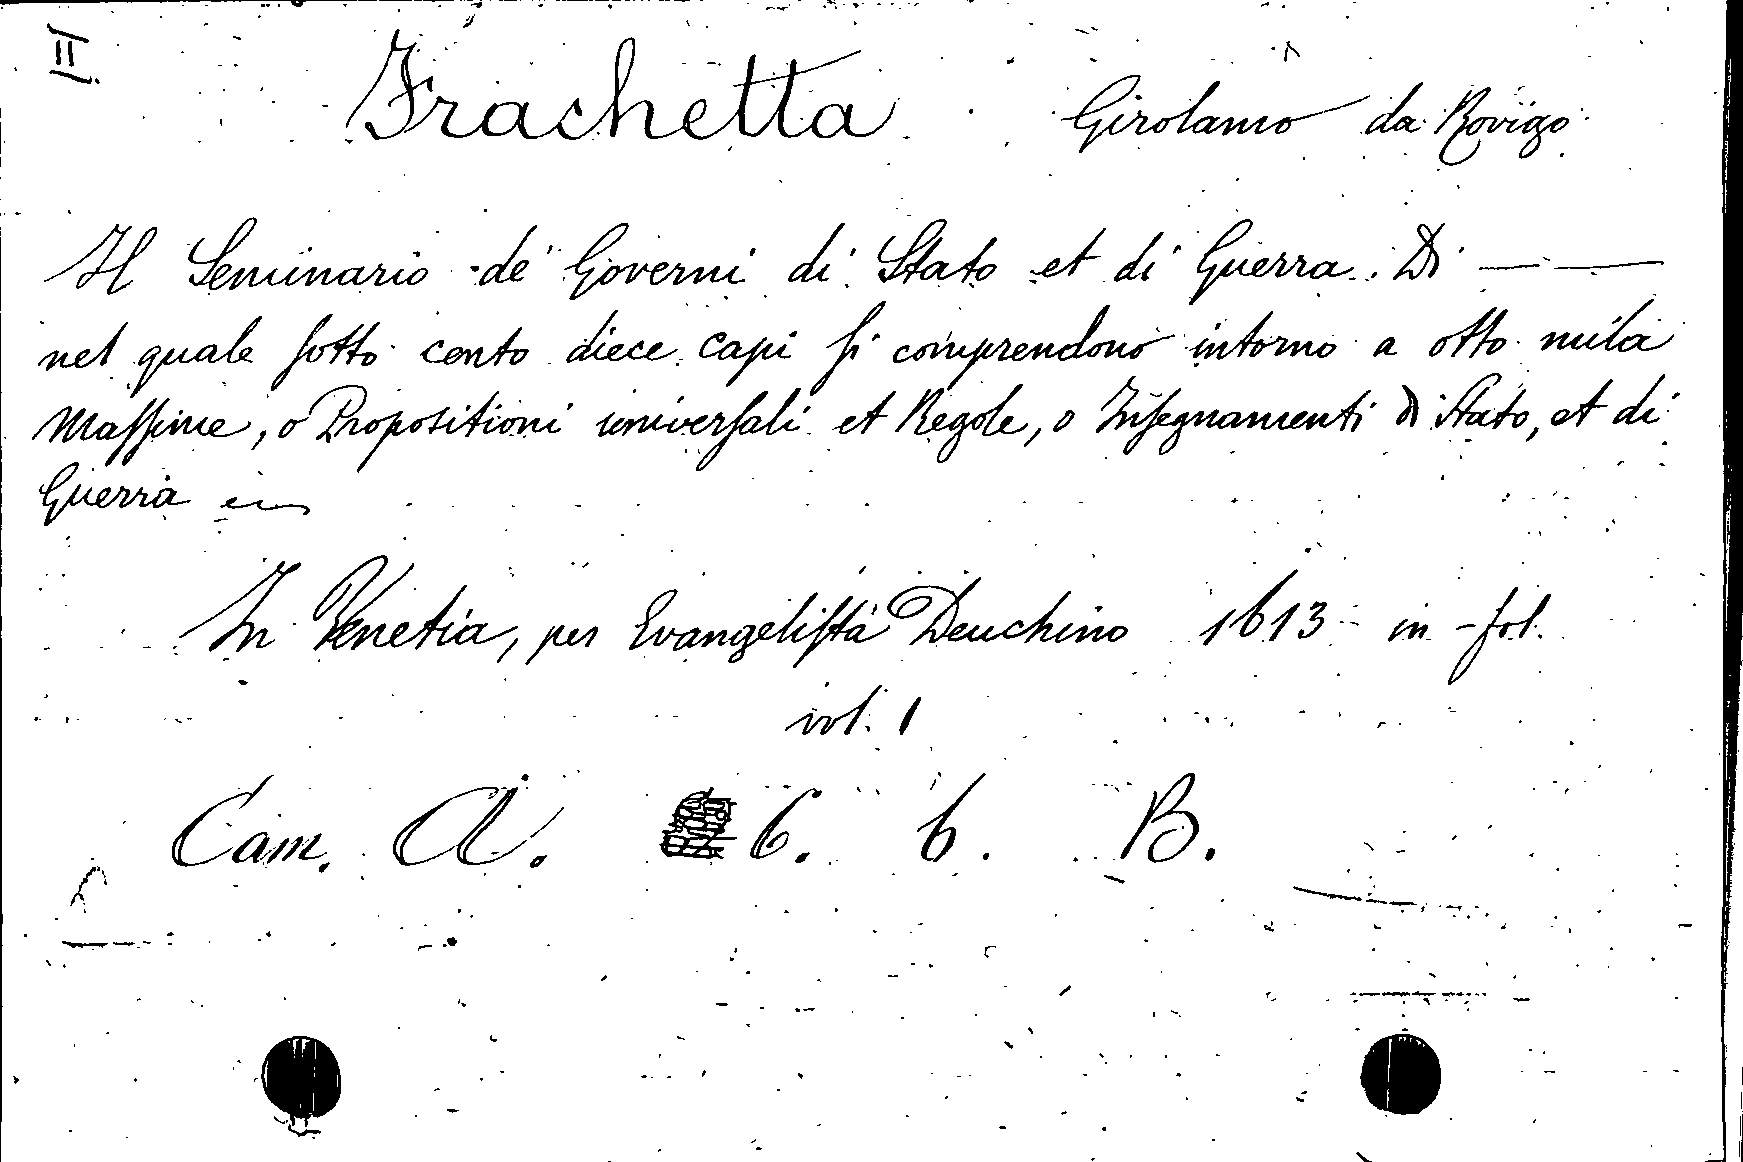 II
Frachetta Girolamo da Rovigo
Il Seminario de' Governi di Stato et di Guerra. Di ——
nel quale ſotto cento diece capi ſi comprendono intorno a otto mila
Maſſime, o Propositioni univerſali et Regole, o Inſegnamenti di Stato, et di
Guerra
In Venetia, per Evangeliſta Deuchino 1613 in-fol.
vol. 1
Cam. A. 6. b. B.